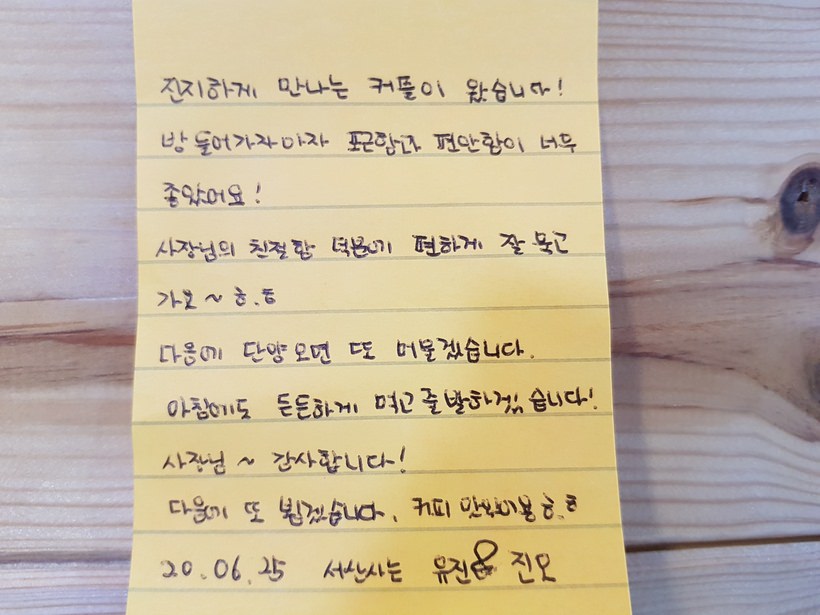 진지하게 만나는 커플이 왔습니다!
방 들어가자마자 포근함과 편안함이 너무
좋았어요!
사장님의 친절함 덕분에 편하게 잘 묵고
가요~ ㅎ.ㅎ
다음에 단양오면 또 머물겠습니다.
아침에도 든든하게 먹고 출발하겠습니다!
사장님~ 감사합니다!
다음에 또 뵙겠습니다. 커피 맛있어용 ㅎ.ㅎ
20.06.25 서산사는 유진 & 진모